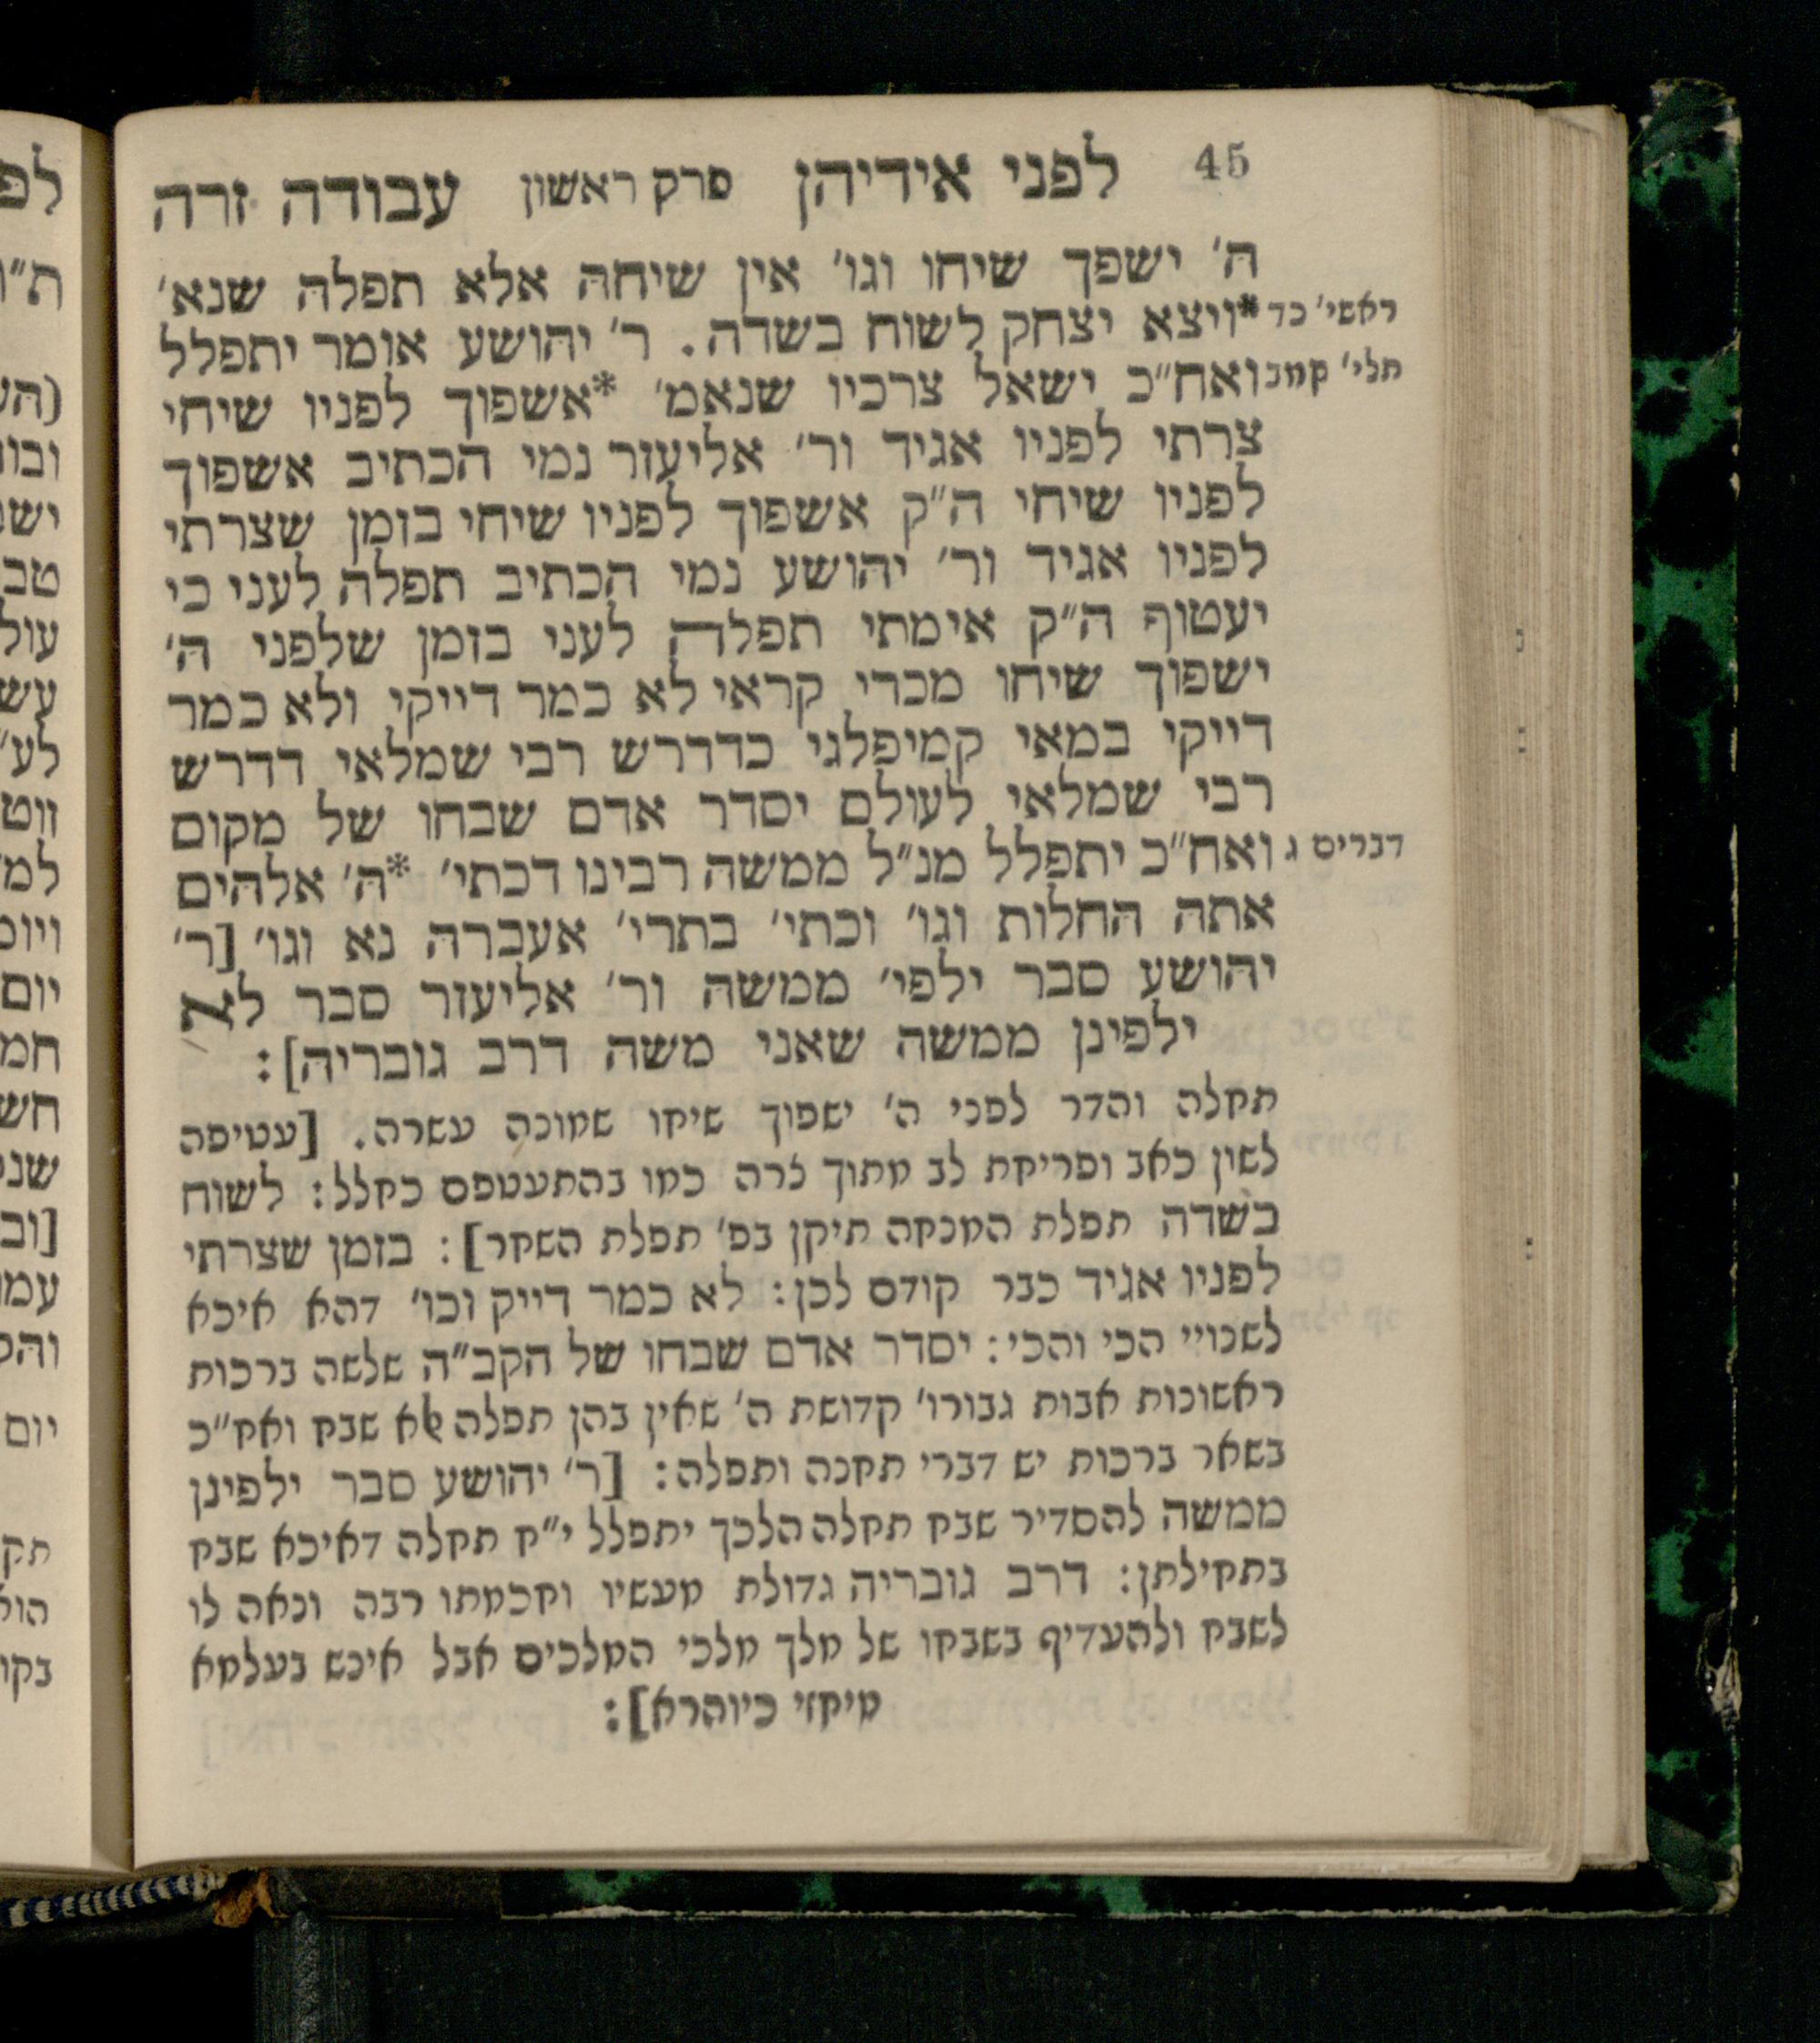 45 לפני אידיהן פרק ראשון עבודה זרה
ה׳ ישפך שיחו וגו׳ אין שיחה אלא תפלה שנא׳
ראשי׳ כד *ויצא יצחק לשוח בשדה. ר׳ יהושע אומר יתפלל
תלי׳ קמב ואח״כ ישאל צרכיו שנאמ׳ *אשפוך לפניו שיחי
צרתי לפניו אגיד ור׳ אליעזר נמי הכתיב אשפוך
לפניו שיחי ה״ק אשפוך לפניו שיחי בזמן שצרתי
לפניו אגיד ור׳ יהושע נמי הכתיב תפלה לעני כי
יעטוף ה״ק אימתי תפלה לעני בזמן שלפני ה׳
ישפוך שיחו מכרי קראי לא כמר דייקי ולא כמר
דייקי במאי קמיפלגי כדדרש רבי שמלאי דדרש
רבי שמלאי לעולם יסדר אדם שבחו של מקום
דברים ג ואח״כ יתפלל מנ״ל ממשה רבינו דכתי׳ *ה׳ אלהים
אתה החלות וגו׳ וכתי׳ בתרי׳ אעברה נא וגו׳ [ר׳
יהושע סבר ילפי׳ ממשה ור׳ אליעזר סבר לא
ילפינן ממשה שאני משה דרב גובריה]:
תחלה והדר לפני ה׳ ישפוך שיחו שמונה עשרה. [עטיפה
לשון כאב ופריחת לב מתוך צרה כמו בהתעטפם כחלל: לשוח
בשדה תפלת המנחה תיקן בפ׳ תפלת השחר]: בזמן שצרתי
לפניו אגיד כבר קודם לכן: לא כמר דייק וכו׳ דהא איכא
לשנויי הכי והכי: יסדר אדם שבחו של הקב״ה שלשה ברכות
ראשונות אבות גבורו׳ קדושת ה׳ שאין בהן תפלה אלא שבח ואח״כ
בשאר ברכות יש דברי תחנה ותפלה: [ר׳ יהושע סבר ילפינן
ממשה להסדיר שבח תחלה הלכך יתפלל י״ח תחלה דאיכא שבח
בתחילתן: דרב גובריה גדולת מעשיו וחכמתו רבה ונאה לו
לשבח ולהעדיף בשבחו של מלך מלכי המלכים אבל איניש בעלמא
מיחזי כיוהרא]: